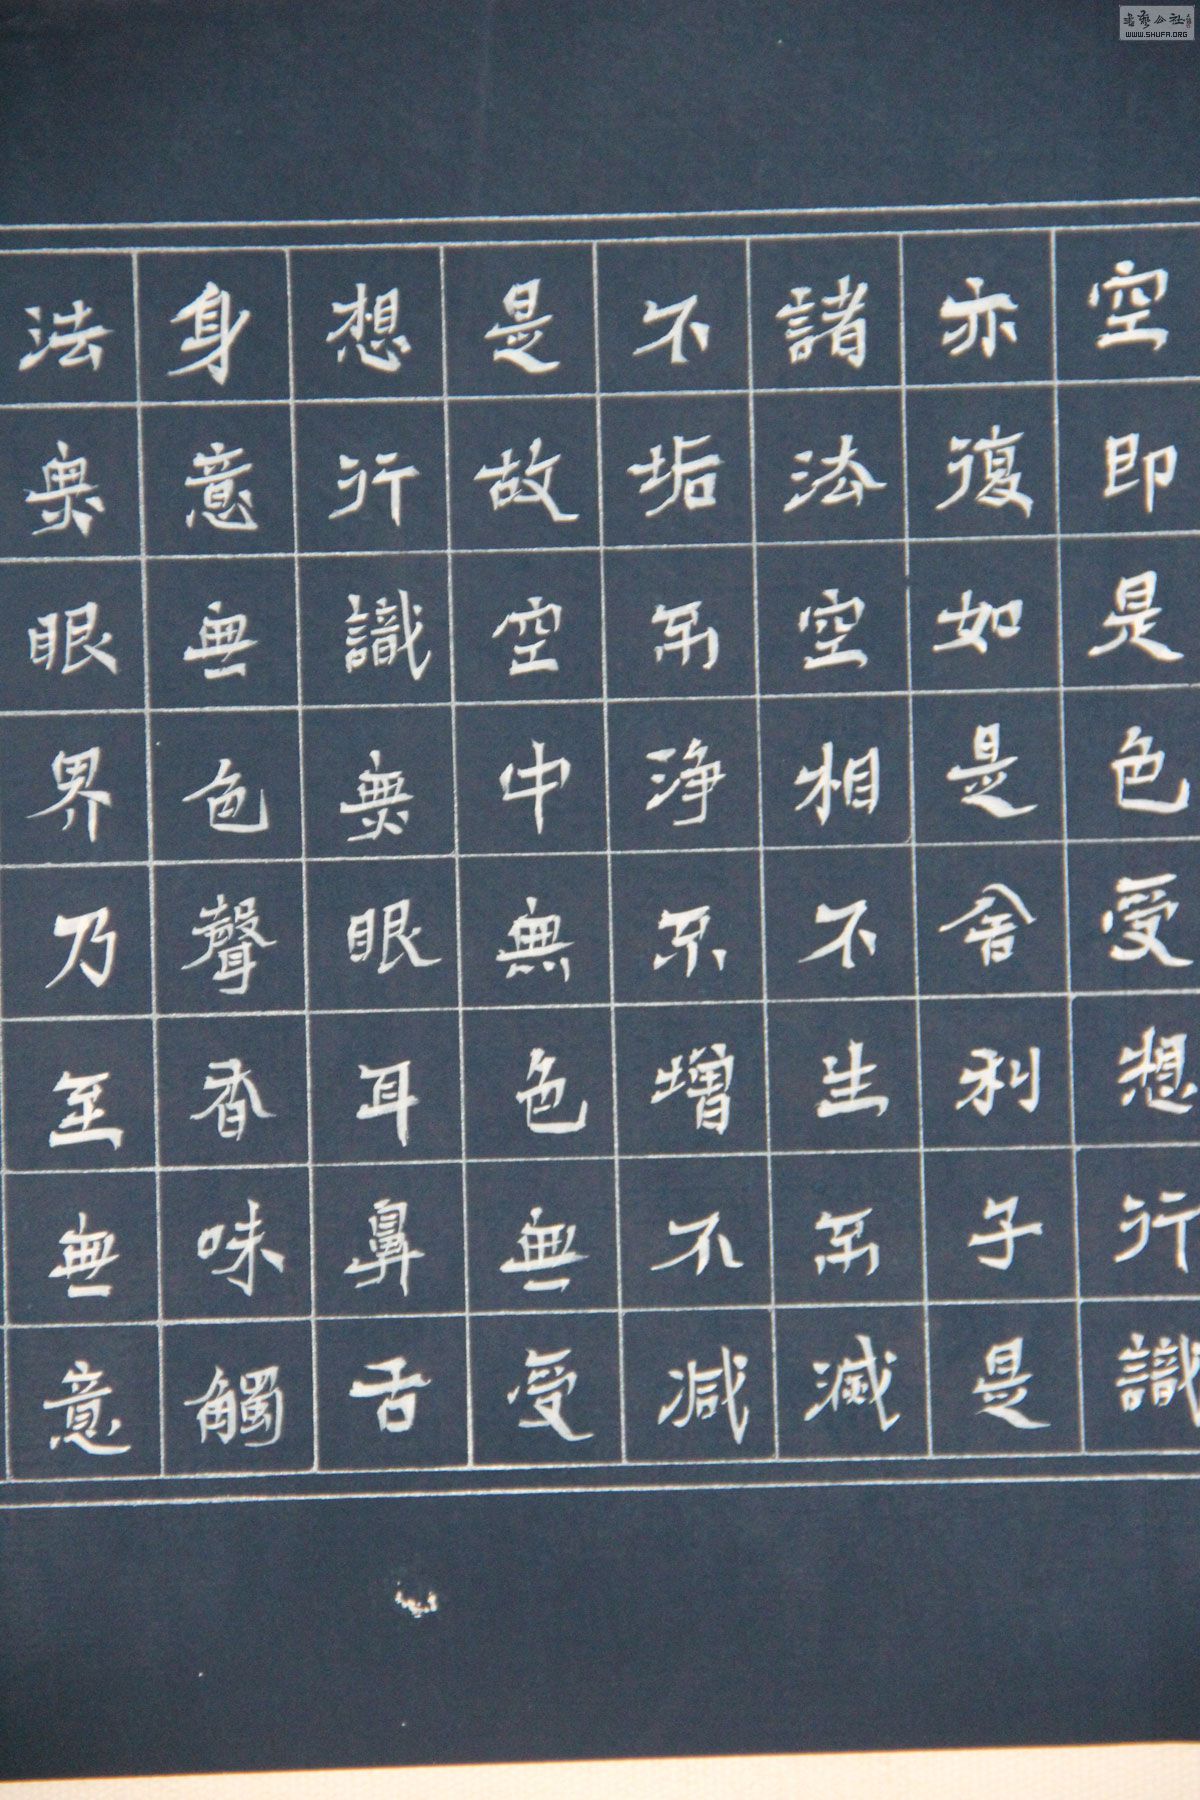 空即是色受想行識
亦復如是舍利子是
諸法空相不生不滅
不垢不淨不增不減
是故空中無色無受
想行識無眼耳鼻舌
身意無色聲香味觸
法無眼界乃至無意
WWW.SHUFA.ORG